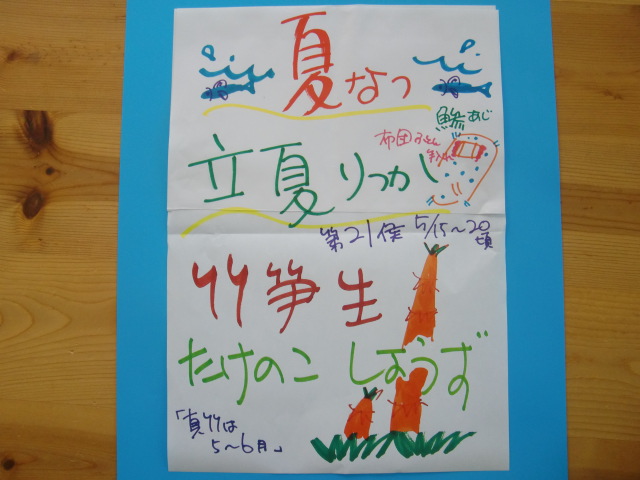 夏なつ
鯵あじ
布団ふとん
立夏りっか
第21候 5/15～20
頃
竹笋生
たけのこ しょうず
「真竹は
5～6月」